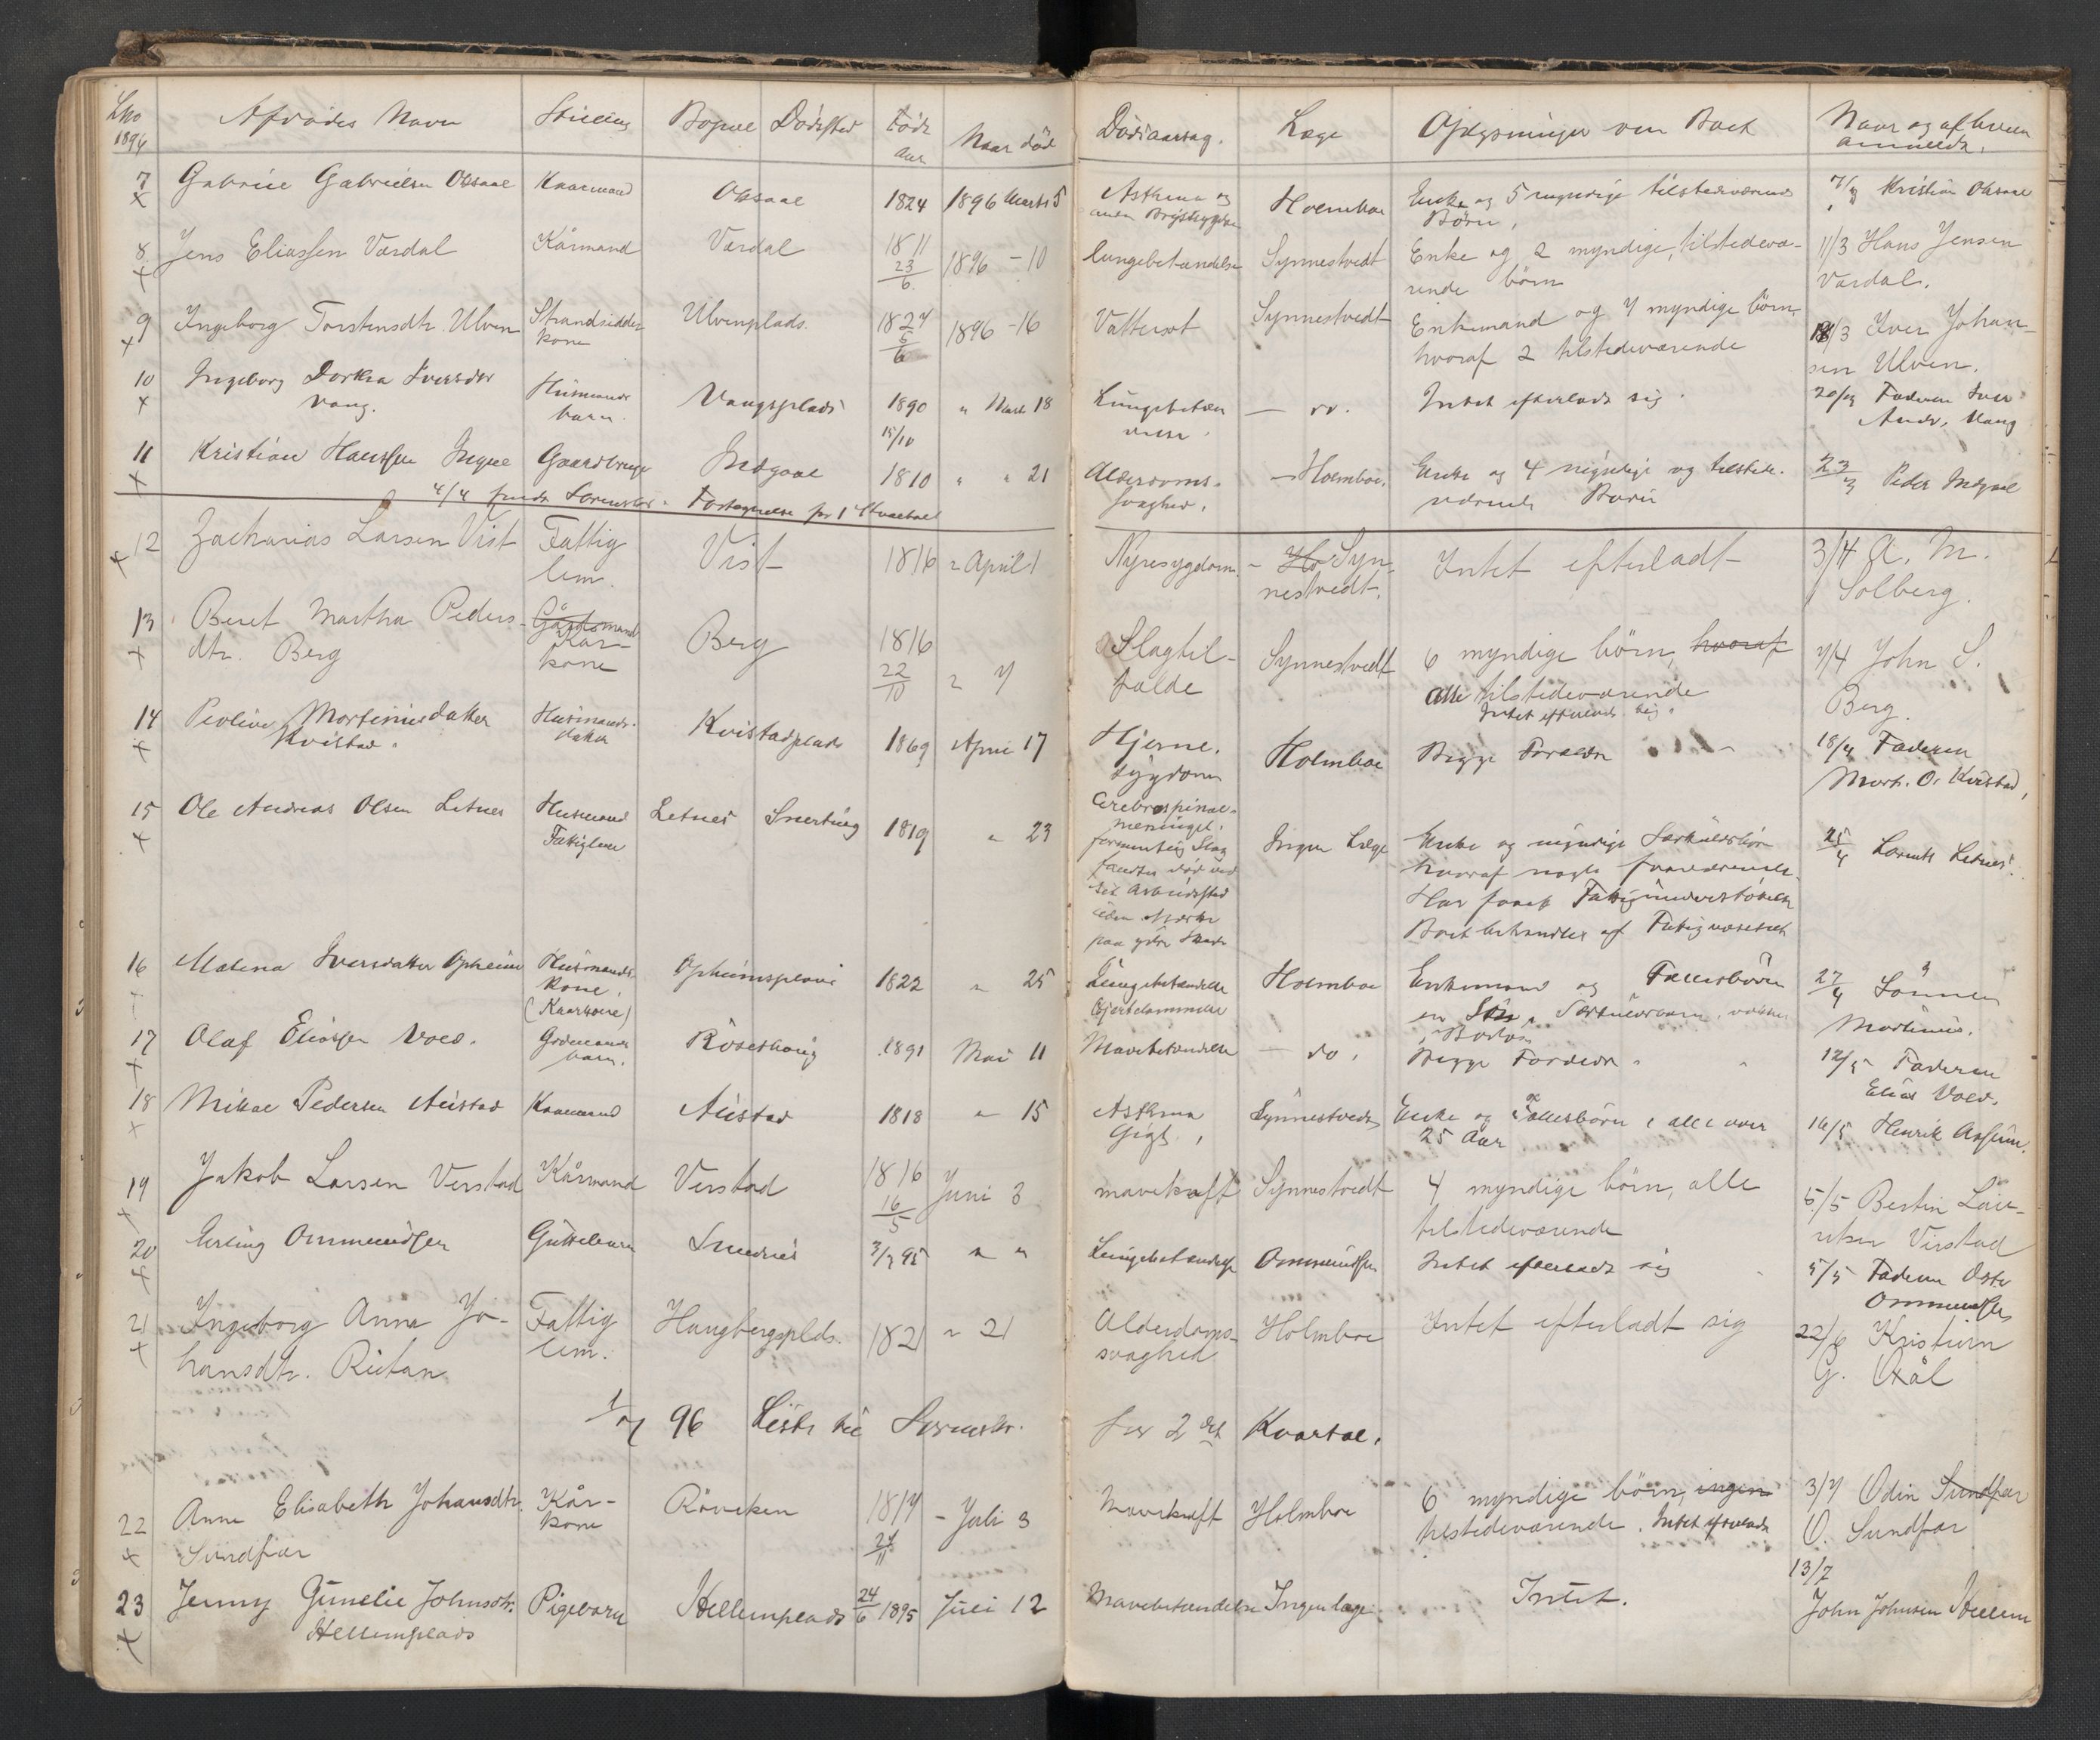 Lno 1896 Afdødes Navn Stilling Bopæl Dødssted Føds aar Naar død Dødsaarsag. Læge Oplysninger om Boet Naar og af hvem anmeldt.
7 Gabriel Gabrielsen Oksaal Kaarmand Oksaal 1824 1896 Marts 5 Asthma og anden Brystsygdom Holmboe Enke og 5 myndige tilstedeværende Børn. Kristian Oksaal
8 Jens Eliassen Vardal Kårmand Vardal 1811 23/6 1896 - 10 lungebetændelse Synnestvedt Enke og 2 myndige, tilstedevæ-
rende børn 11/3 Hans Jensen Vardal.
9 Ingeborg Torstensdtr. Ulven Strandsidder kone Ulvenplads. 1824 6/6 1896 - 16 Vattersot Synnestvedt Enkemand og 7 myndige børn,
hvoraf 2 tilstedeværende /3 Iver Johan-
sen Ulven.
10 Ingeborg Dorthea Iversdtr Vang. Husmands barn Vangsplads 1890 15/10 " Marts 18 Lungebetæn delse - do. Intet efterladt sig. 20/3 Faderen Iver Andr. Vang
11 Kristian Hanssen Indgaal Gaardbruger Indgaal 1810 " " 21 Alderdoms-
svaghed. - Holmboe. Enke og 4 myndige og tilstede-
værende Børn 23/3 Peder Indgaal
4/4 sendt Sorenskr. Fortegnelse for 1ste Kvartal
12 Zacharias Larsen Vist Fattig lem. Vist 1816 " April 1 Nyresygdom. - Ho Syn-
nestvedt. Intet efterladt 3/4 A. M. Solberg.
13 Beret Martha Peders-
dtr. Berg Gårdmand Kår-
kone Berg 1816 22/10 " 7 Slagtil-
fælde Synnestvedt 6 myndige børn, hvoraf
alle tilstedeværende
Intet efterladt sig. 7/4 John S. Berg.
14 Peoline Mortinusdatter Kvistad. Husmands-
datter Kvistadplads 1869 April 17 Hjerne-
sygdom
Cerebrospinal-
meningit. Holmboe Begge Forældre 18/4 Faderen Mort. O. Kvistad.
15 Ole Andreas Olsen Letnes Husmand Fattiglem Letnes Snerting 1819 " 23 formentlig Slag
fandtes død ved
sit Arbeidssted
uden Mærke
paa ydre Skade Ingen Læge Enke og myndige Særkuldsbørn
hvoraf nogle fraværende.
Har faaet Fattigunderstøttelse
Boet behandles af Fattigvæsenet 25/4 Lorents Letnes.
16 Malena Iversdatter Opheim Husmands-
kone.
(Kaarkone) Opheimsplads 1822 " 25 Lungebetændelse
Hjertelammelse Holmboe Enkemand og Fællesbørn
en Søn, Særkuldbarn, voksen
i Bodø 27/4 Sønnen Martinus.
17 Olaf Eliassen Vold. Gdmands barn. Røsethaug 1891 Mai 11 Mavebetændelse - do. Begge Forældre 12/5 Faderen Elias Vold.
18 Mikal Pedersen Austad Kaarmand Austad 1818 " 15 Asthma
Gigt. Synnestvedt Enke og Fællesbørn, alle over
25 Aar 16/5 Henrik
19 Jakob Larsen Verstad Kårmand Verstad 1816 16/5 Juni 3 mavekræft Synnestvedt 4 myndige børn, alle
tilstedeværende 5/5 Lau-
ritsen Virstad
20 Erling Ommundsen Guttebarn Sundnes 95 " " Lungebetændelse Ommundsen Intet efterladt sig 5/5 Faderen Ommundsen
21 Ingeborg Anna Jo-
hansdtr. Ristan Fattig lem. Haugbergsplds. 1821 " 21 Alderdoms-
svaghed Holmboe Intet efterladt sig 22/6 Kristian G. Oxål
1/7 96 Liste til Sorenskr. for 2det Kvartal.
22 Anne Elisabeth Johansdtr. Sundfær Kår-
kone Røviken 1817 - Juli 3 Mavekræft Holmboe 6 myndige børn, ingen
tilstedeværende. Intet efterladt 3/7 Odin Sundfær
O. Sundfær
23 Jenny Gunelie Johnsdtr. Hellemplads Pigebarn Hellemplads 24/6 1895 Juli 12 Mavebetændelse Ingen læge Intet. 13/7
John Johnsen Hellem